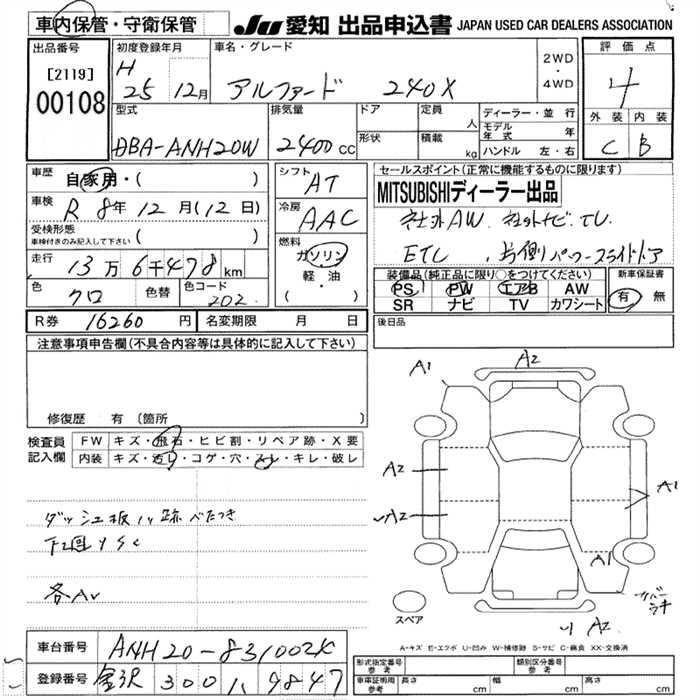 車内保管・守衛保管 JU 愛知 出品申込書 JAPAN USED CAR DEALERS ASSOCIATION
出品番号 初度登録年月 車名・グレード 2WD・4WD 評価点
[2119] H
00108 25 12月 アルファード 240X 4
型式 排気量 ドア 定員 人 ディーラー・並行 外装 内装
DBA-ANH20W 2400 CC 形状 積載 kg モデル年式 年 C B
ハンドル 左・右
車歴 自家用・( ) シフト AT セールスポイント(正常に機能するものに限ります)
車検 R 8年 12月(12日) 冷房 AAC MITSUBISHIディーラー出品
受検形態 車検付きのみ記入して下さい ( ) 社外AW. 社外ナビ. TV
走行 13万 6千478 km 燃料 ガソリン・軽・油 ( ) ETC . 片側パワースライドドア
色 クロ 色替 色コード 202 装備品(純正品に限り○をつけてください) 新車保証書
PS PW エアB AW 有 無
SR ナビ TV カワシート
R券 16260 円 名変期限 月 日 後日品
注意事項申告欄(不具合内容等は具体的に記入して下さい)
修復歴 有 (箇所 )
検査員記入欄 FW キズ・飛石・ヒビ割・リペア跡・X要
内装 キズ・汚レ・コゲ・穴・スレ・キレ・破レ
A1 A2
A2 A1
A2
A1
ダッシュ板ハリ跡べたつき
下回りSC
各AV
スペア
A2
A-キズ E-エクボ U-凹み W-補修跡 S-サビ C-腐食 XX-交換済
車台番号 ANH20-8310024
登録番号 金沢 300 ハ 9847
形式指定番号 参考 類別区分番号 参考
車庫証明用 参考 長さ cm 幅 cm 高さ cm